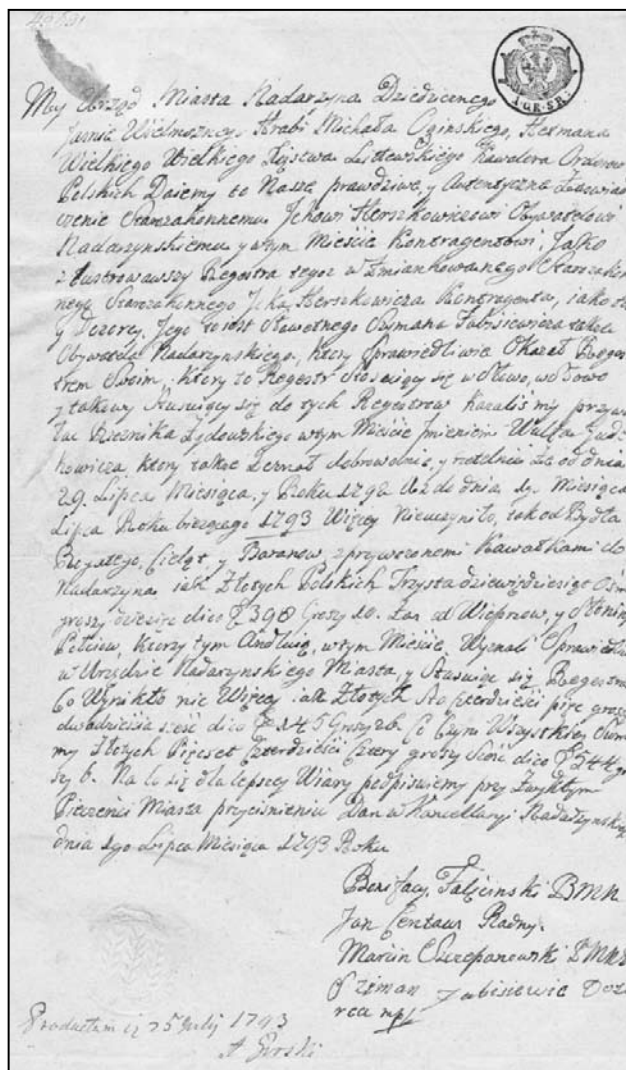 My Urząd Miasta Nadarzyna Dziedzicznego
Jaśnie Wielmożnego Hrabi Michała Oginskiego, Hetmana
Wielkiego Wielkiego Xięstwa Littewskiego Kawalera Orderow
Polskich Daiemy to Nasze prawdziwe, y Autentyczne Zaswiad
czenie Starozakonnemu Herszkowiczowi Obywatelowi
Nadarzynskiemu y wtym Mieście Kontragentowi, Jako
zlustrowawszy Regestra tegoż wzmiankowanego Starozakon
nego Starozakonnego Herszkowicza Kontragenta, iako też
y Dozorcy, Jego to iest Sławetnego Szymana Tubisiewicza także
Obywatela Nadarzynskiego, ktory Sprawiedliwie Okazał Reges
trem Swoim, ktory to Regestr Stosuiący się w Słowo, w Słowo
y takowy Stosuiący się do tych Regestrow kazaliśmy przywo
łać Rzeznika Żydowskiego wtym Mieście imieniem Wulfa
kowicza, ktory także zeznał dobrowolnie, y rzetelnie że od dnia
29. Lipca Miesiąca, y Roku 1792 Aż do dnia 1g. Miesiąca
Lipca Roku bieżnego 1793 Więcey Nieuczyniło, iak od Bydła
Rogatego, Cieląt y Baranow, z przywozonemi Kawałkami do
Nadarzyna iak Złotych Polskich Trzysta dziewięćdziesiąt Ośm
groszy dico f 398 Groszy 10. Zas od Wieprzow, y Słoniny
Ktorzy tym Andluią, wtym Mieście Wyznali Sprawiedliwie
w Urzędzie Nadarzynskiego Miasta, y Stosuiąc się Regestra
Co Wynikło nic Więcey iak Złotych Sto czterdzieści pięć groszy
dwadzieścia sześć dico f 145 Groszy 26 Co Czyni Wszystkiey Sum
my Złotych Pięćset Czterdzieści Cztery groszy Sześć dico f 544 gro
szy 6. Na to się dla lepszey Wiary podpisuiemy przy Zwykłym
Pieczęci Miasta przyciśnieniu Dan w Kancellaryi Nadarzynskiey
dnia 1go Lipca Miesiąca 1793 Roku
Bonifacy Falęcinski BMN
Jan Centaur Radny.
Marcin Szczepanowski
Sziman Tubisiewic Dozo
rca mpp
Productum 25 Julij 1793
A Gorski